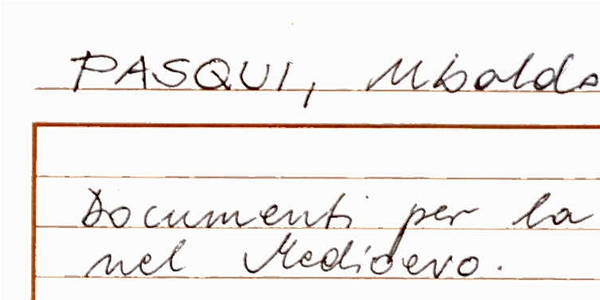 PASQUI, Ubaldo
Documenti per la
nel Medioevo.